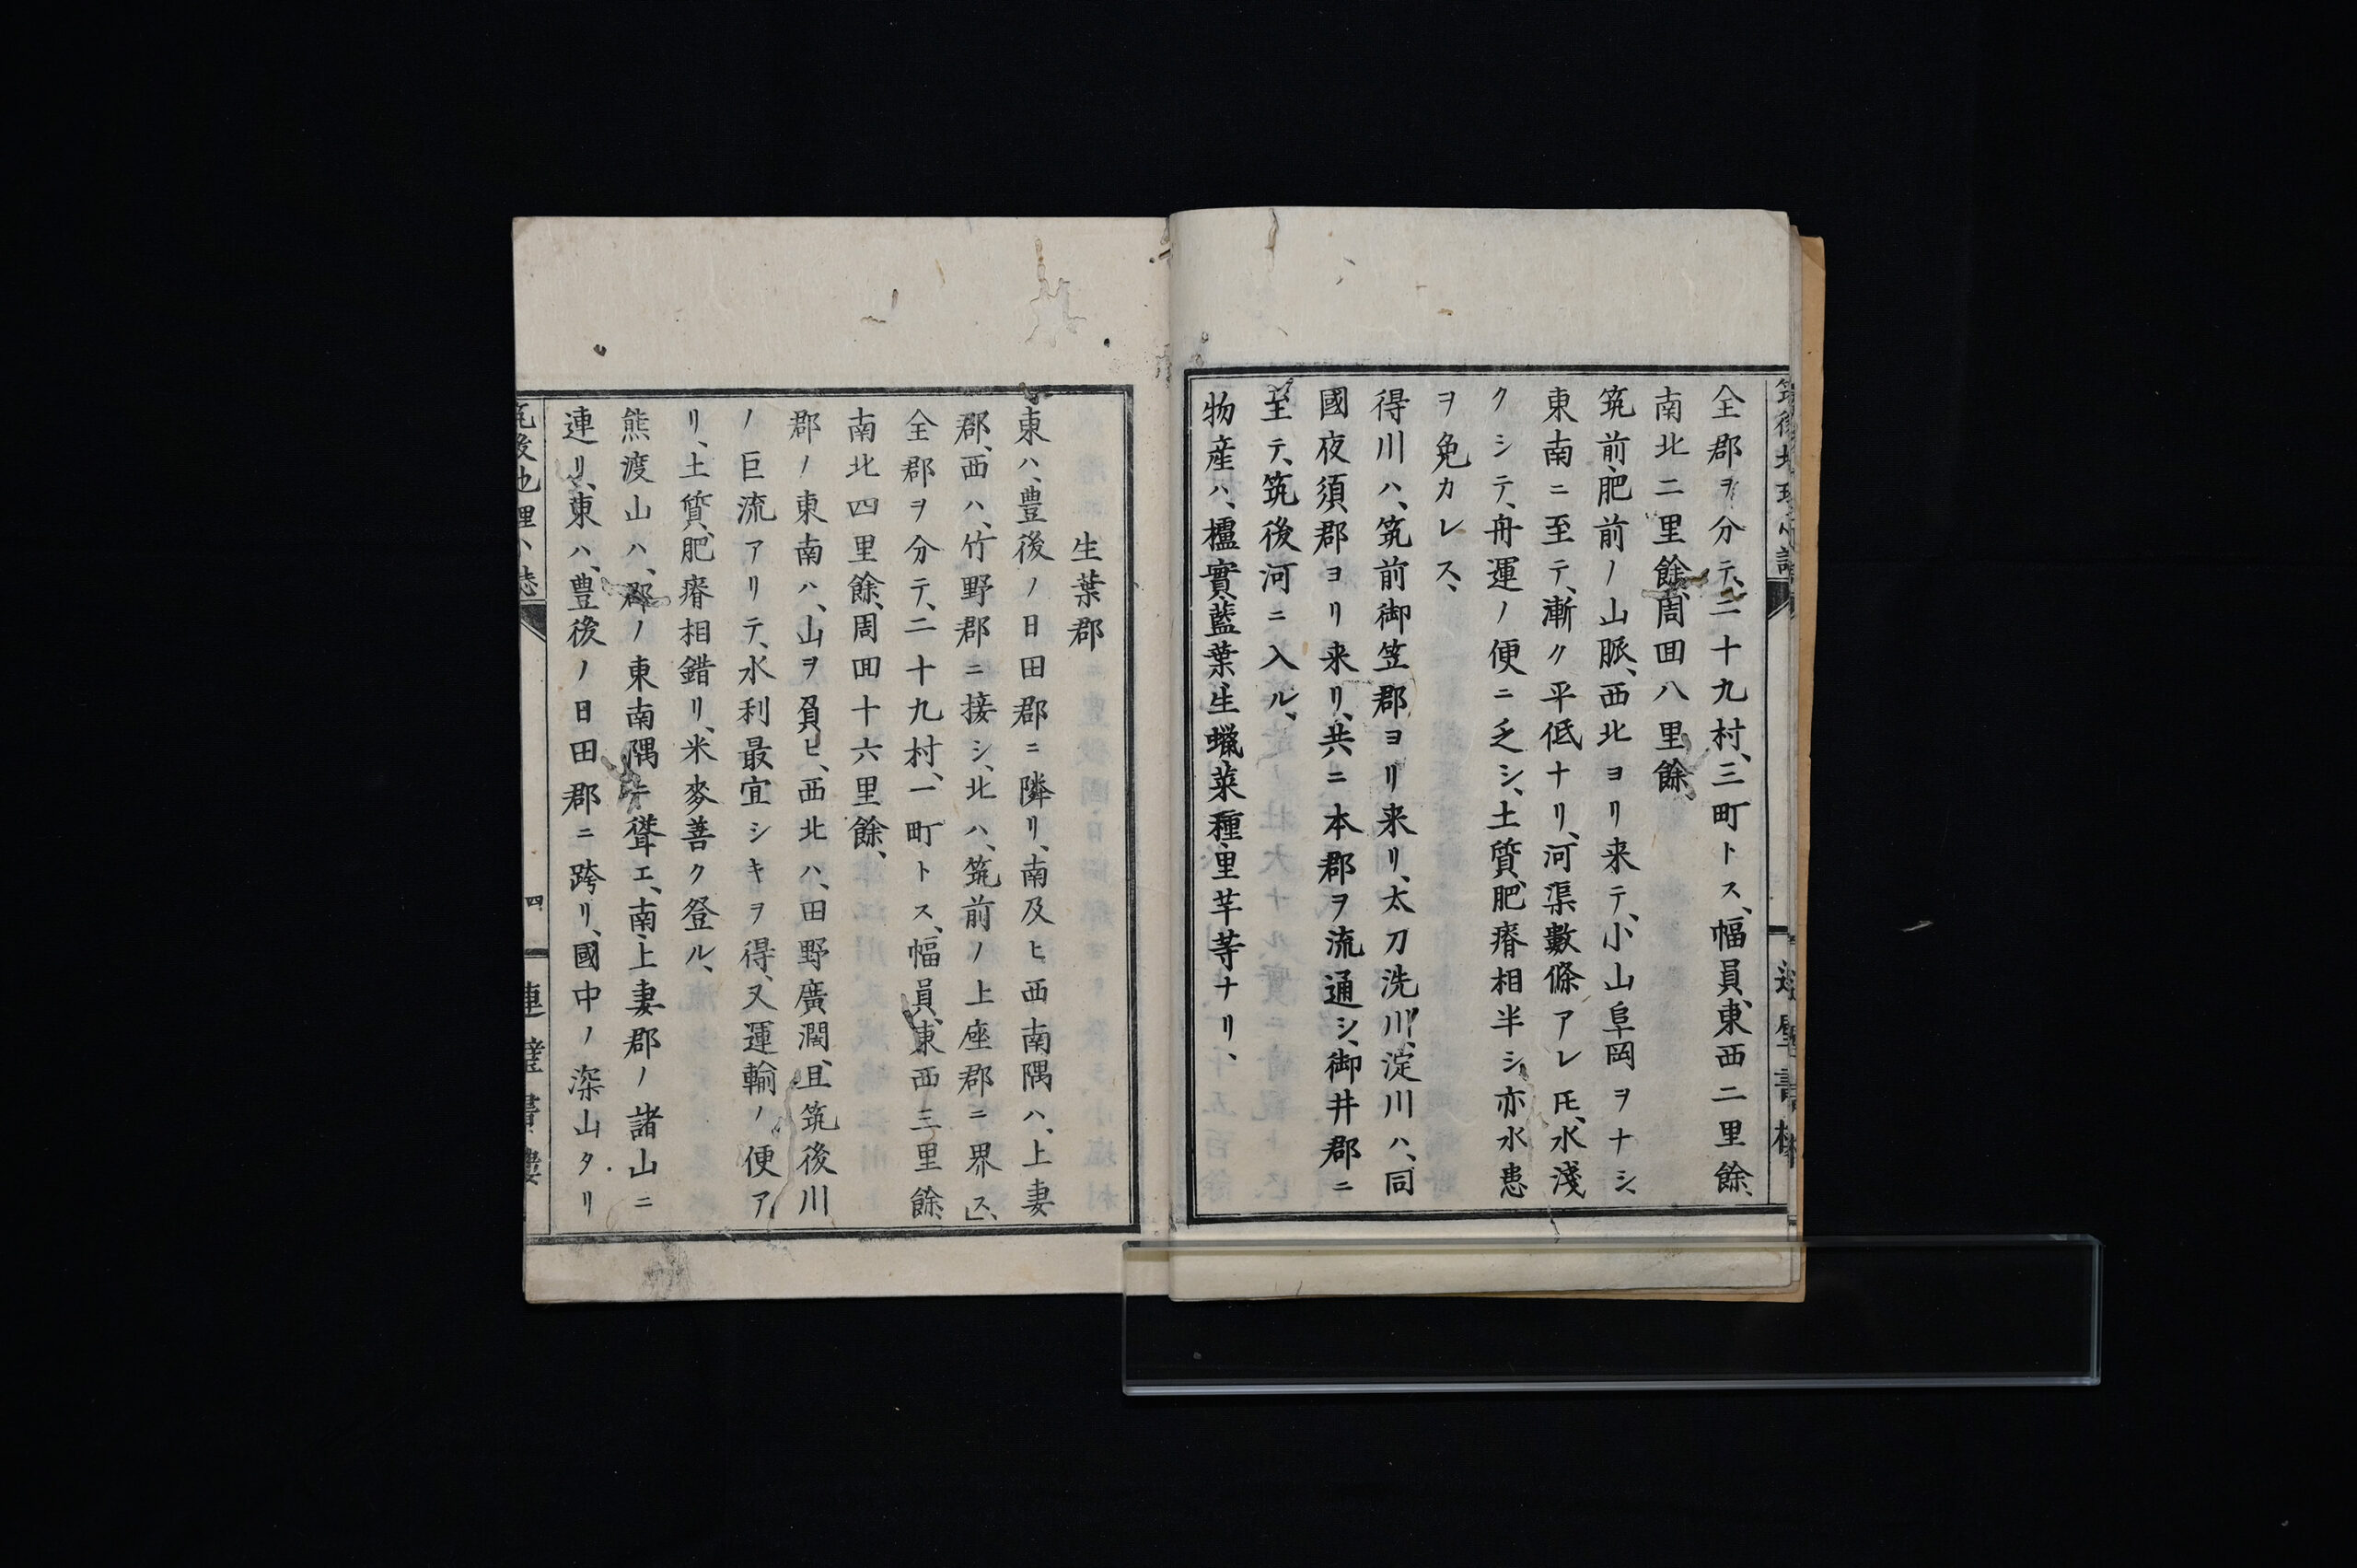 全郡ヲ分テ、二十九村、三町トス、幅員、東西二里餘、
南北二里餘、周囬八里餘、
筑前、肥前ノ山脈、西北ヨリ来テ、小山阜岡ヲナシ、
東南ニ至テ、漸ク平低ナリ、河渠數條アレ𪜈、水淺
クシテ、舟運ノ便ニ乏シ、土質、肥瘠相半シ、亦水患
ヲ免カレス、
得川ハ、筑前御笠郡ヨリ来リ、太刀洗川、淀川ハ、同
國夜須郡ヨリ来リ、共ニ本郡ヲ流通シ、御井郡ニ
至テ、筑後河ニ入ル、
物産ハ、櫨實、藍葉、生蠟、菜種、里芋等ナリ、
生葉郡
東ハ、豊後ノ日田郡ニ隣リ、南及ヒ西南隅ハ、上妻
郡、西ハ、竹野郡ニ接シ、北ハ、筑前ノ上座郡ニ界ス、
全郡ヲ分テ、二十九村、一町トス、幅員、東西三里餘、
南北四里餘、周囬十六里餘、
郡ノ東南ハ、山ヲ負ヒ、西北ハ、田野廣濶、且筑後川
ノ巨流アリテ、水利最宜シキヲ得、又運輸ノ便ア
リ、土質、肥瘠相錯リ、米麥善ク登ル、
熊渡山ハ、郡ノ東南隅ニ聳エ、南、上妻郡ノ諸山ニ
連リ、東ハ、豊後ノ日田郡ニ跨リ、國中ノ深山タリ
四